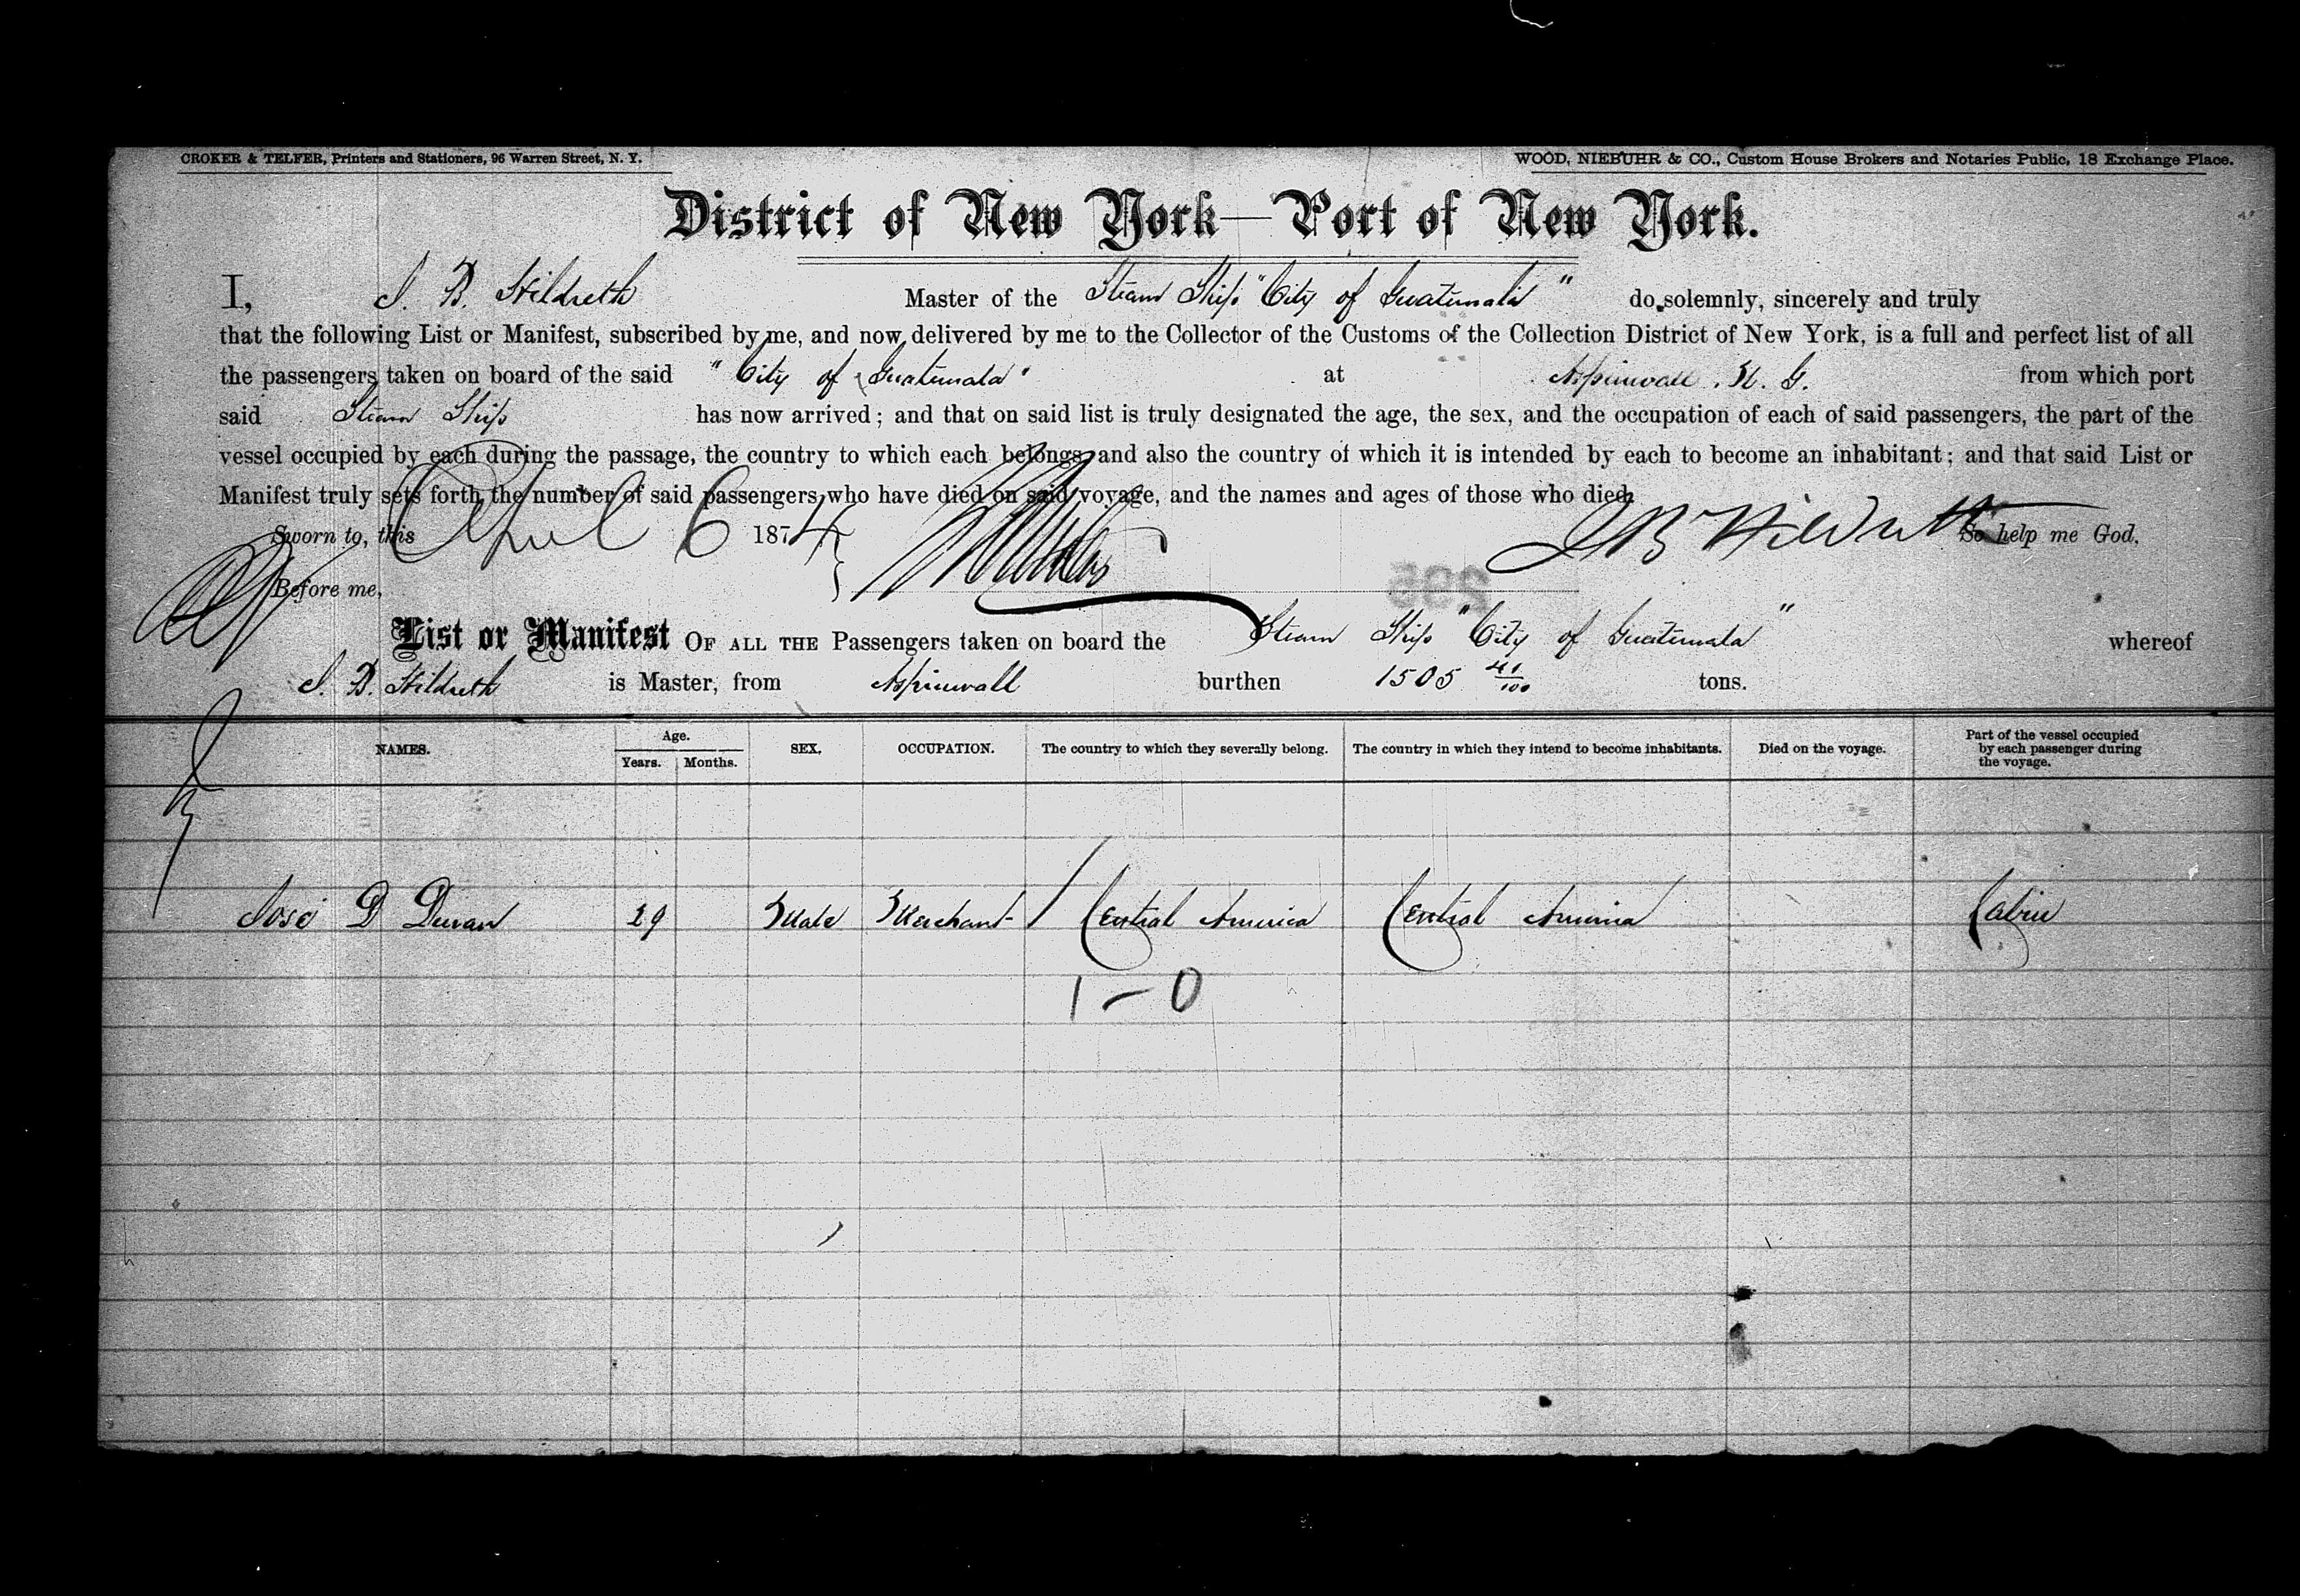 CROKER & TELFER, Printers and Stationers, 96 Warren Street, N. Y.
WOOD, NIEBUHR & CO., Custom House Brokers and Notaries Public, 18 Exchange Place.
District of New York—Port of New York.
I, J. B. Hildreth Master of the Steam Ship "City of Guatemala" do solemnly, sincerely and truly
that the following List or Manifest, subscribed by me, and now delivered by me to the Collector of the Customs of the Collection District of New York, is a full and perfect list of all
the passengers taken on board of the said "City of Guatemala" at Aspinwall. N. G. from which port
said Steam Ship has now arrived; and that on said list is truly designated the age, the sex, and the occupation of each of said passengers, the part of the
vessel occupied by each during the passage, the country to which each belongs, and also the country of which it is intended by each to become an inhabitant; and that said List or
Manifest truly sets forth the number of said passengers who have died on said voyage, and the names and ages of those who died.
Sworn to, this April 6 1874 J B Hildreth So help me God.
Before me,
295
List or Manifest OF ALL THE Passengers taken on board the Steam Ship "City of Guatemala" whereof
J. B. Hildreth is Master, from Aspinwall burthen 1505 41/100 tons.
NAMES. Age. Years. Months. SEX. OCCUPATION. The country to which they severally belong. The country in which they intend to become inhabitants. Died on the voyage. Part of the vessel occupied by each passenger during the voyage.
José D Duran 29 Male Merchant / Central America Central America Cabin
1 – 0